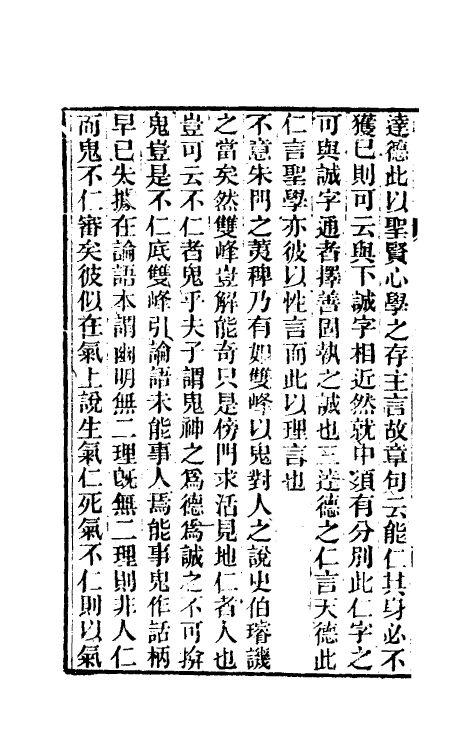 達德此以聖賢心學之存主言故章句云能仁其身必不
獲已則可云與下誠字相近然就中須有分別此仁字之
可與誠字通者擇善固執之誠也三達德之仁言天德此
仁言聖學亦彼以性言而此以理言也
不意朱門之荑稗乃有如雙峰以鬼對人之說史伯璿譏
之當矣然雙峰豈解能奇只是傍門求活見地仁者人也
豈可云不仁者鬼乎夫子謂鬼神之爲德爲誠之不可揜
鬼豈是不仁底雙峰引論語未能事人焉能事鬼作話柄
早已失據在論語本謂幽明無二理旣無二理則非人仁
而鬼不仁審矣彼似在氣上說生氣仁死氣不仁則以氣